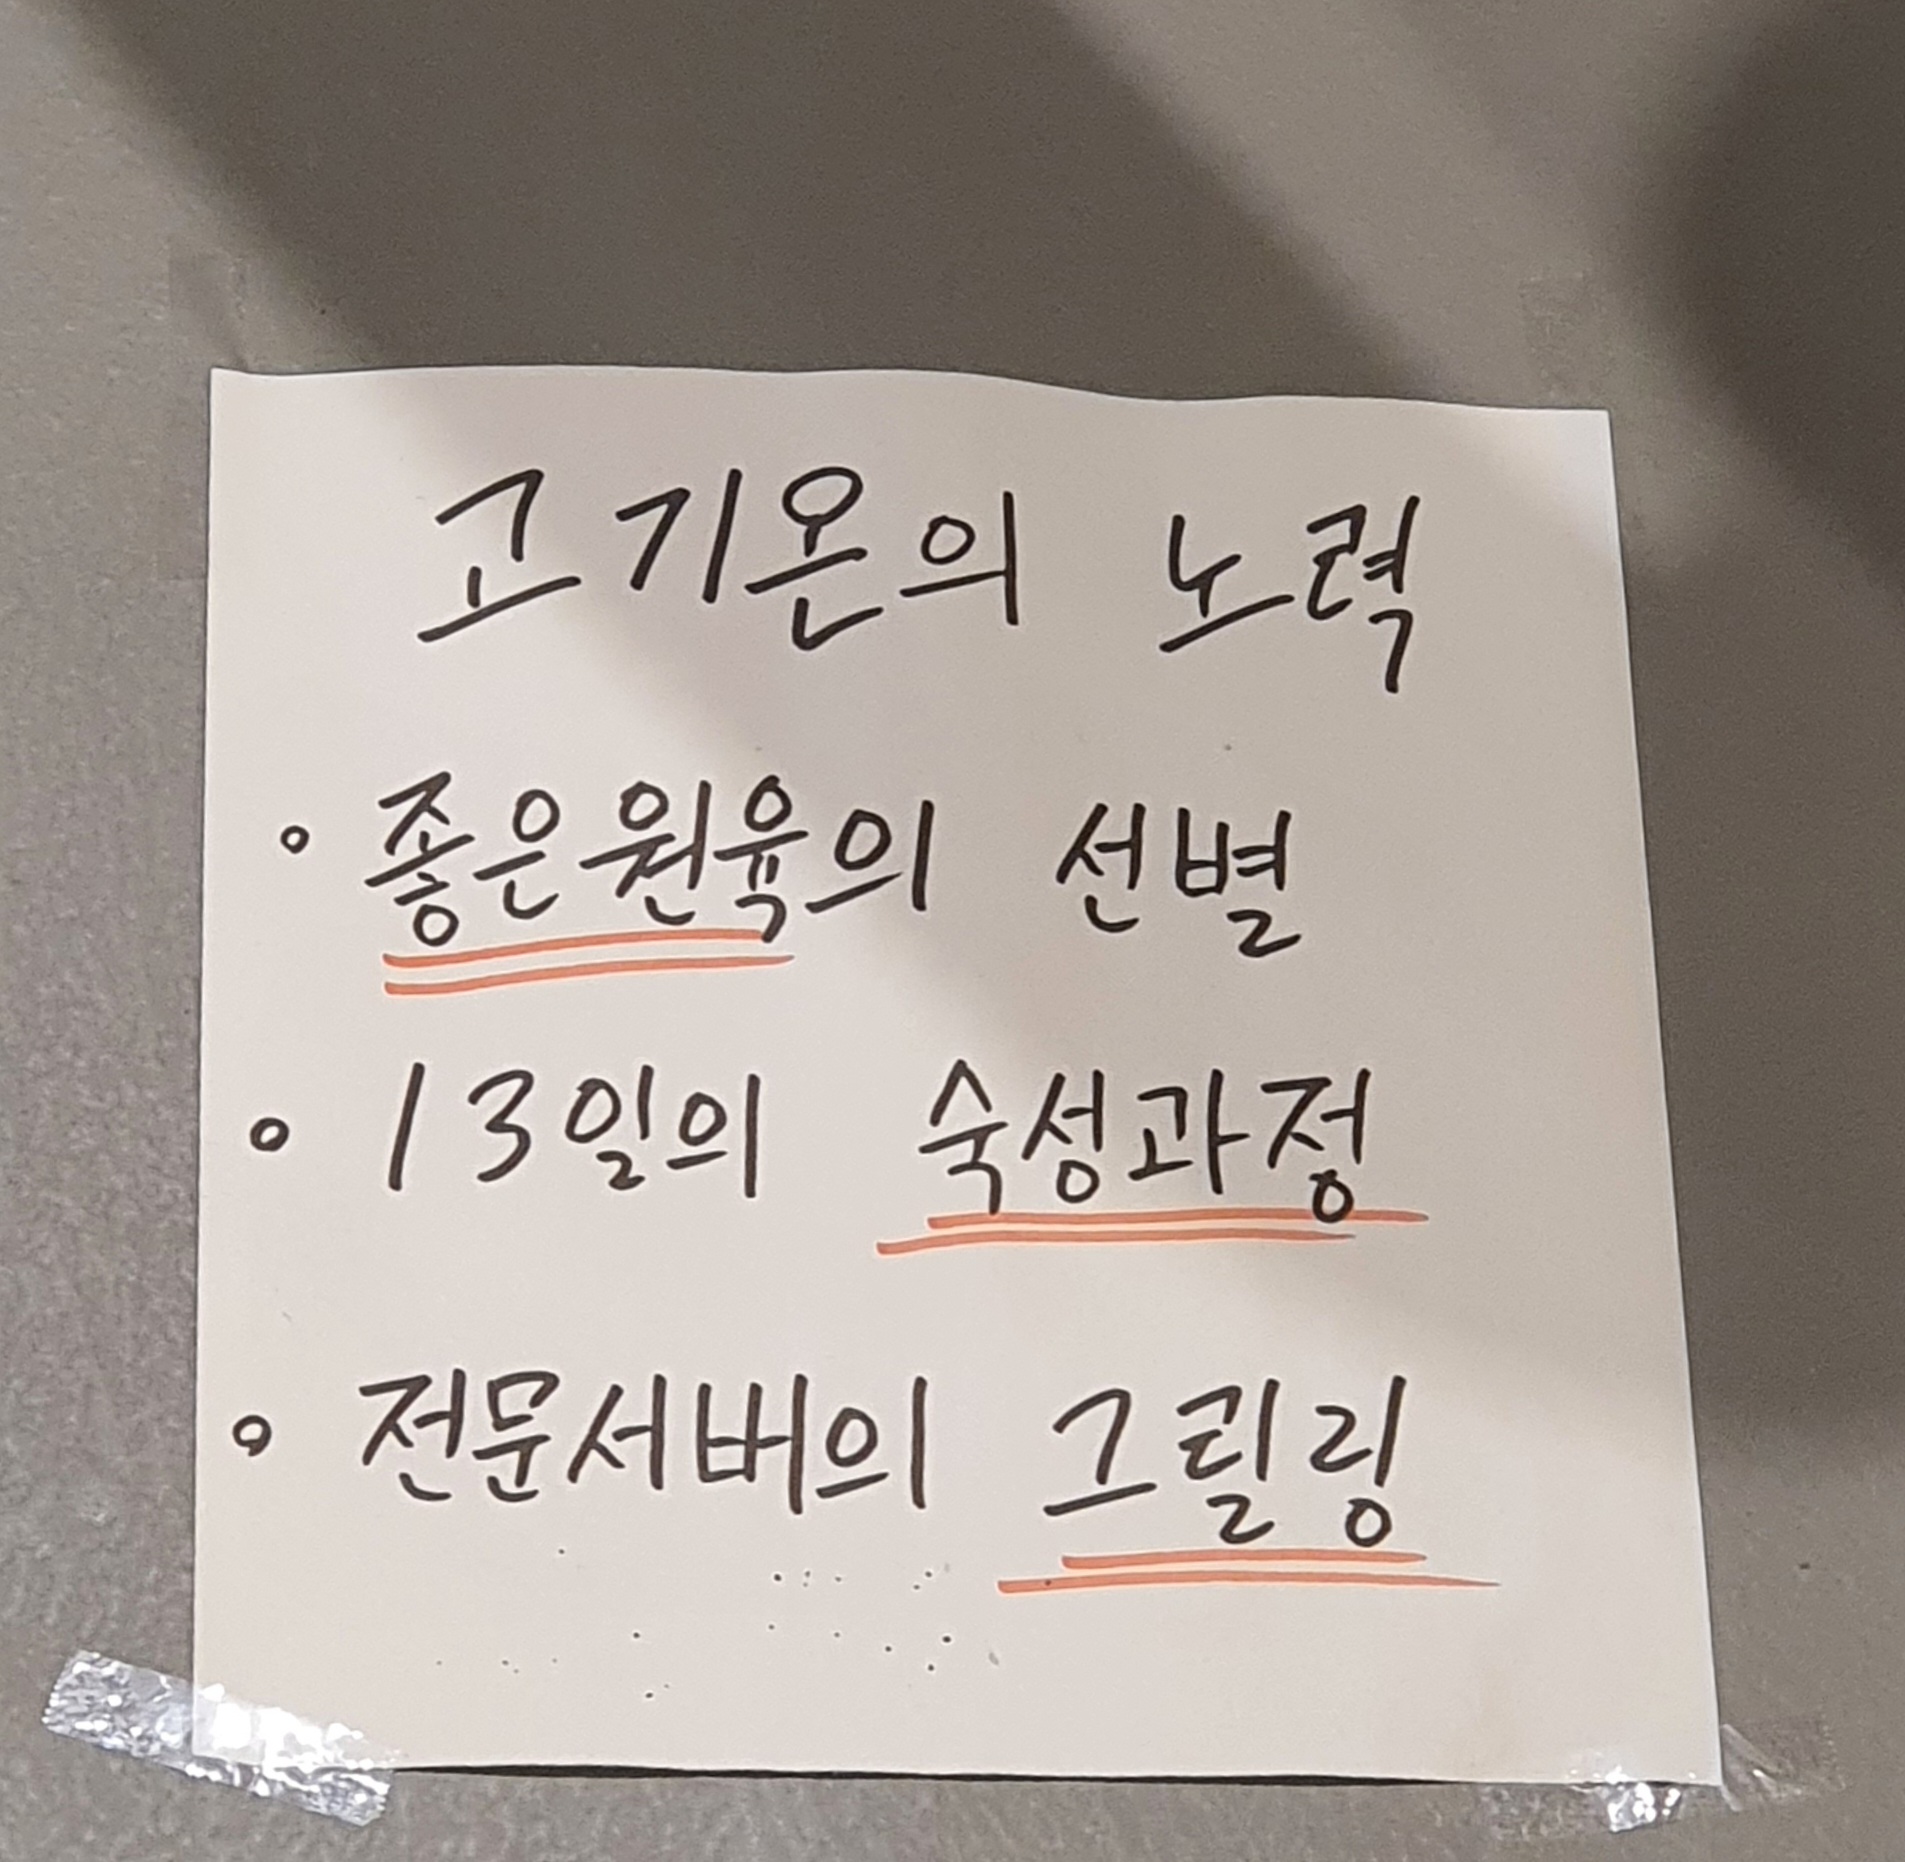 고기온의 노력
◦ 좋은원육의 선별
◦ 13일의 숙성과정
◦ 전문서버의 그릴링